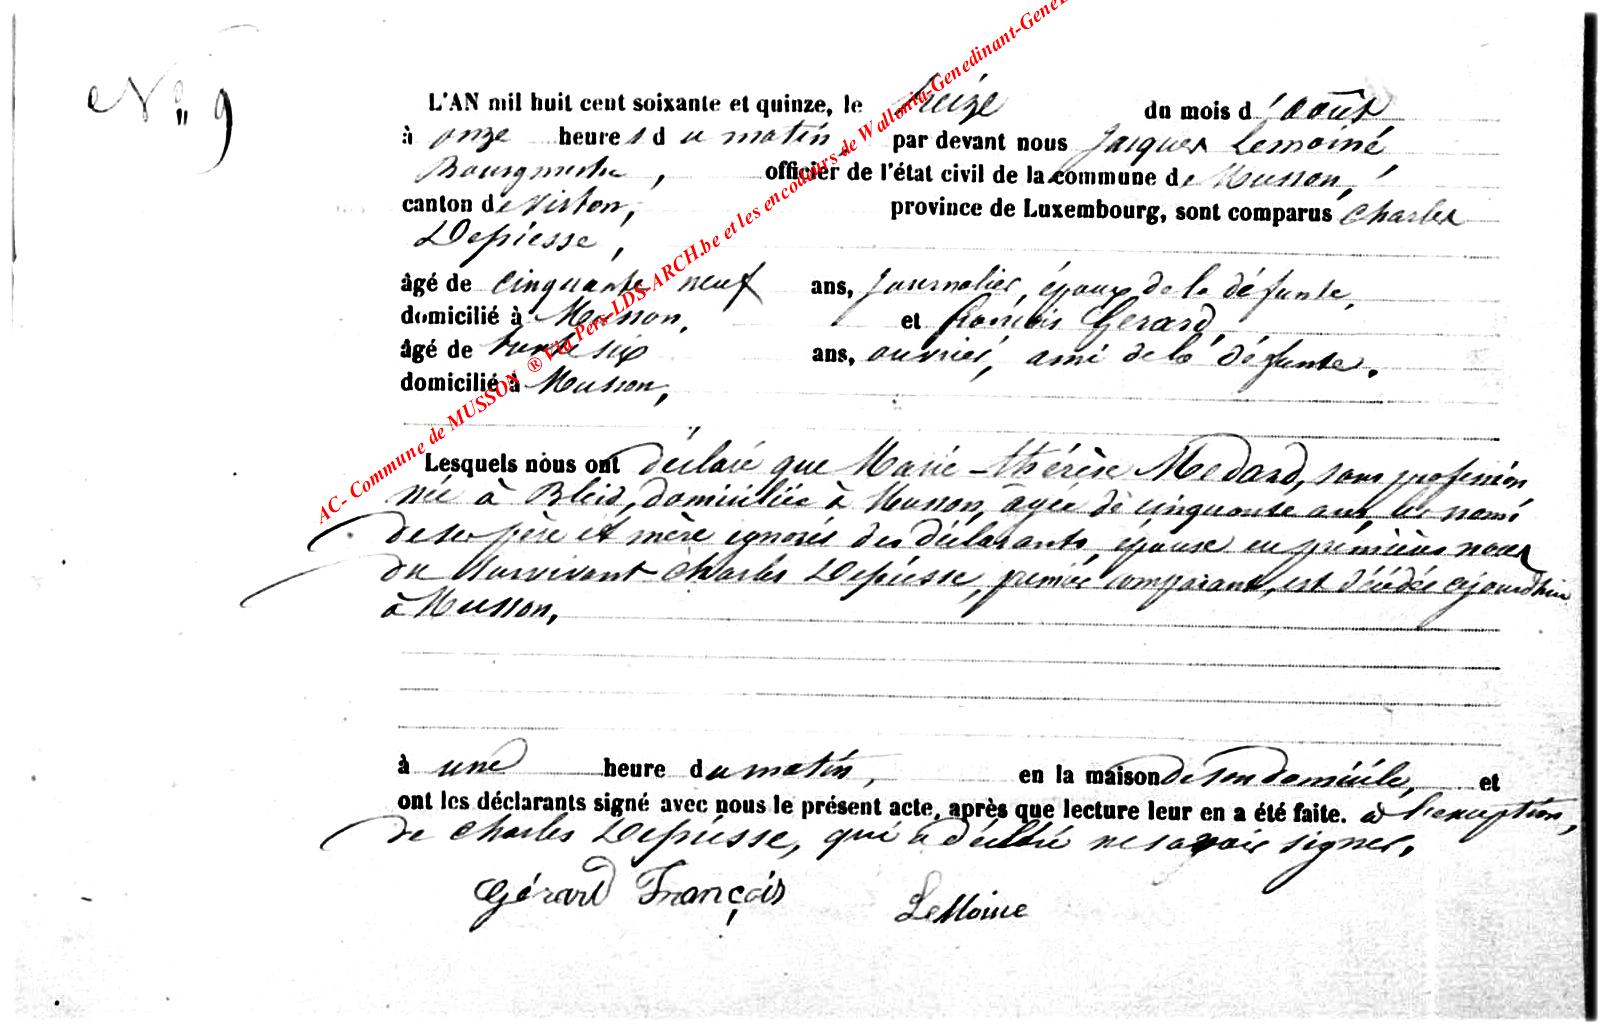 N° 9
L'AN mil huit cent soixante et quinze, le treize du mois d'août
à onze heures du matin par devant nous Jacques Lemoine,
Bourgmestre, officier de l'état civil de la commune de Musson,
canton de Virton, province de Luxembourg, sont comparus Charles
Depiesse,
âgé de cinquante neuf ans, journalier, époux de la défunte,
domicilié à Musson, et François Gérard,
âgé de trente six ans, ouvrier, ami de la défunte.
domicilié à Musson,
Lesquels nous ont déclaré que Marie-thérèse Medard, sans profession
née à Bleid, domiciliée à Musson, âgée de cinquante ans, les noms
de ses père et mère ignorés des déclarants, épouse en premières noces
du survivant Charles Depiesse, premier comparant, est décédée aujourd'hui
à Musson,
à une heure du matin, en la maison de son domicile, et
ont les déclarants signé avec nous le présent acte, après que lecture leur en a été faite. à l'exception,
de Charles Depiesse, qui a déclaré ne savoir signer.
Gérard François LeMoine
AC- Commune de MUSSON ® Via Pers-LDS-ARCH.be et les encodeurs de Wallonia-Genedinant-GeneL